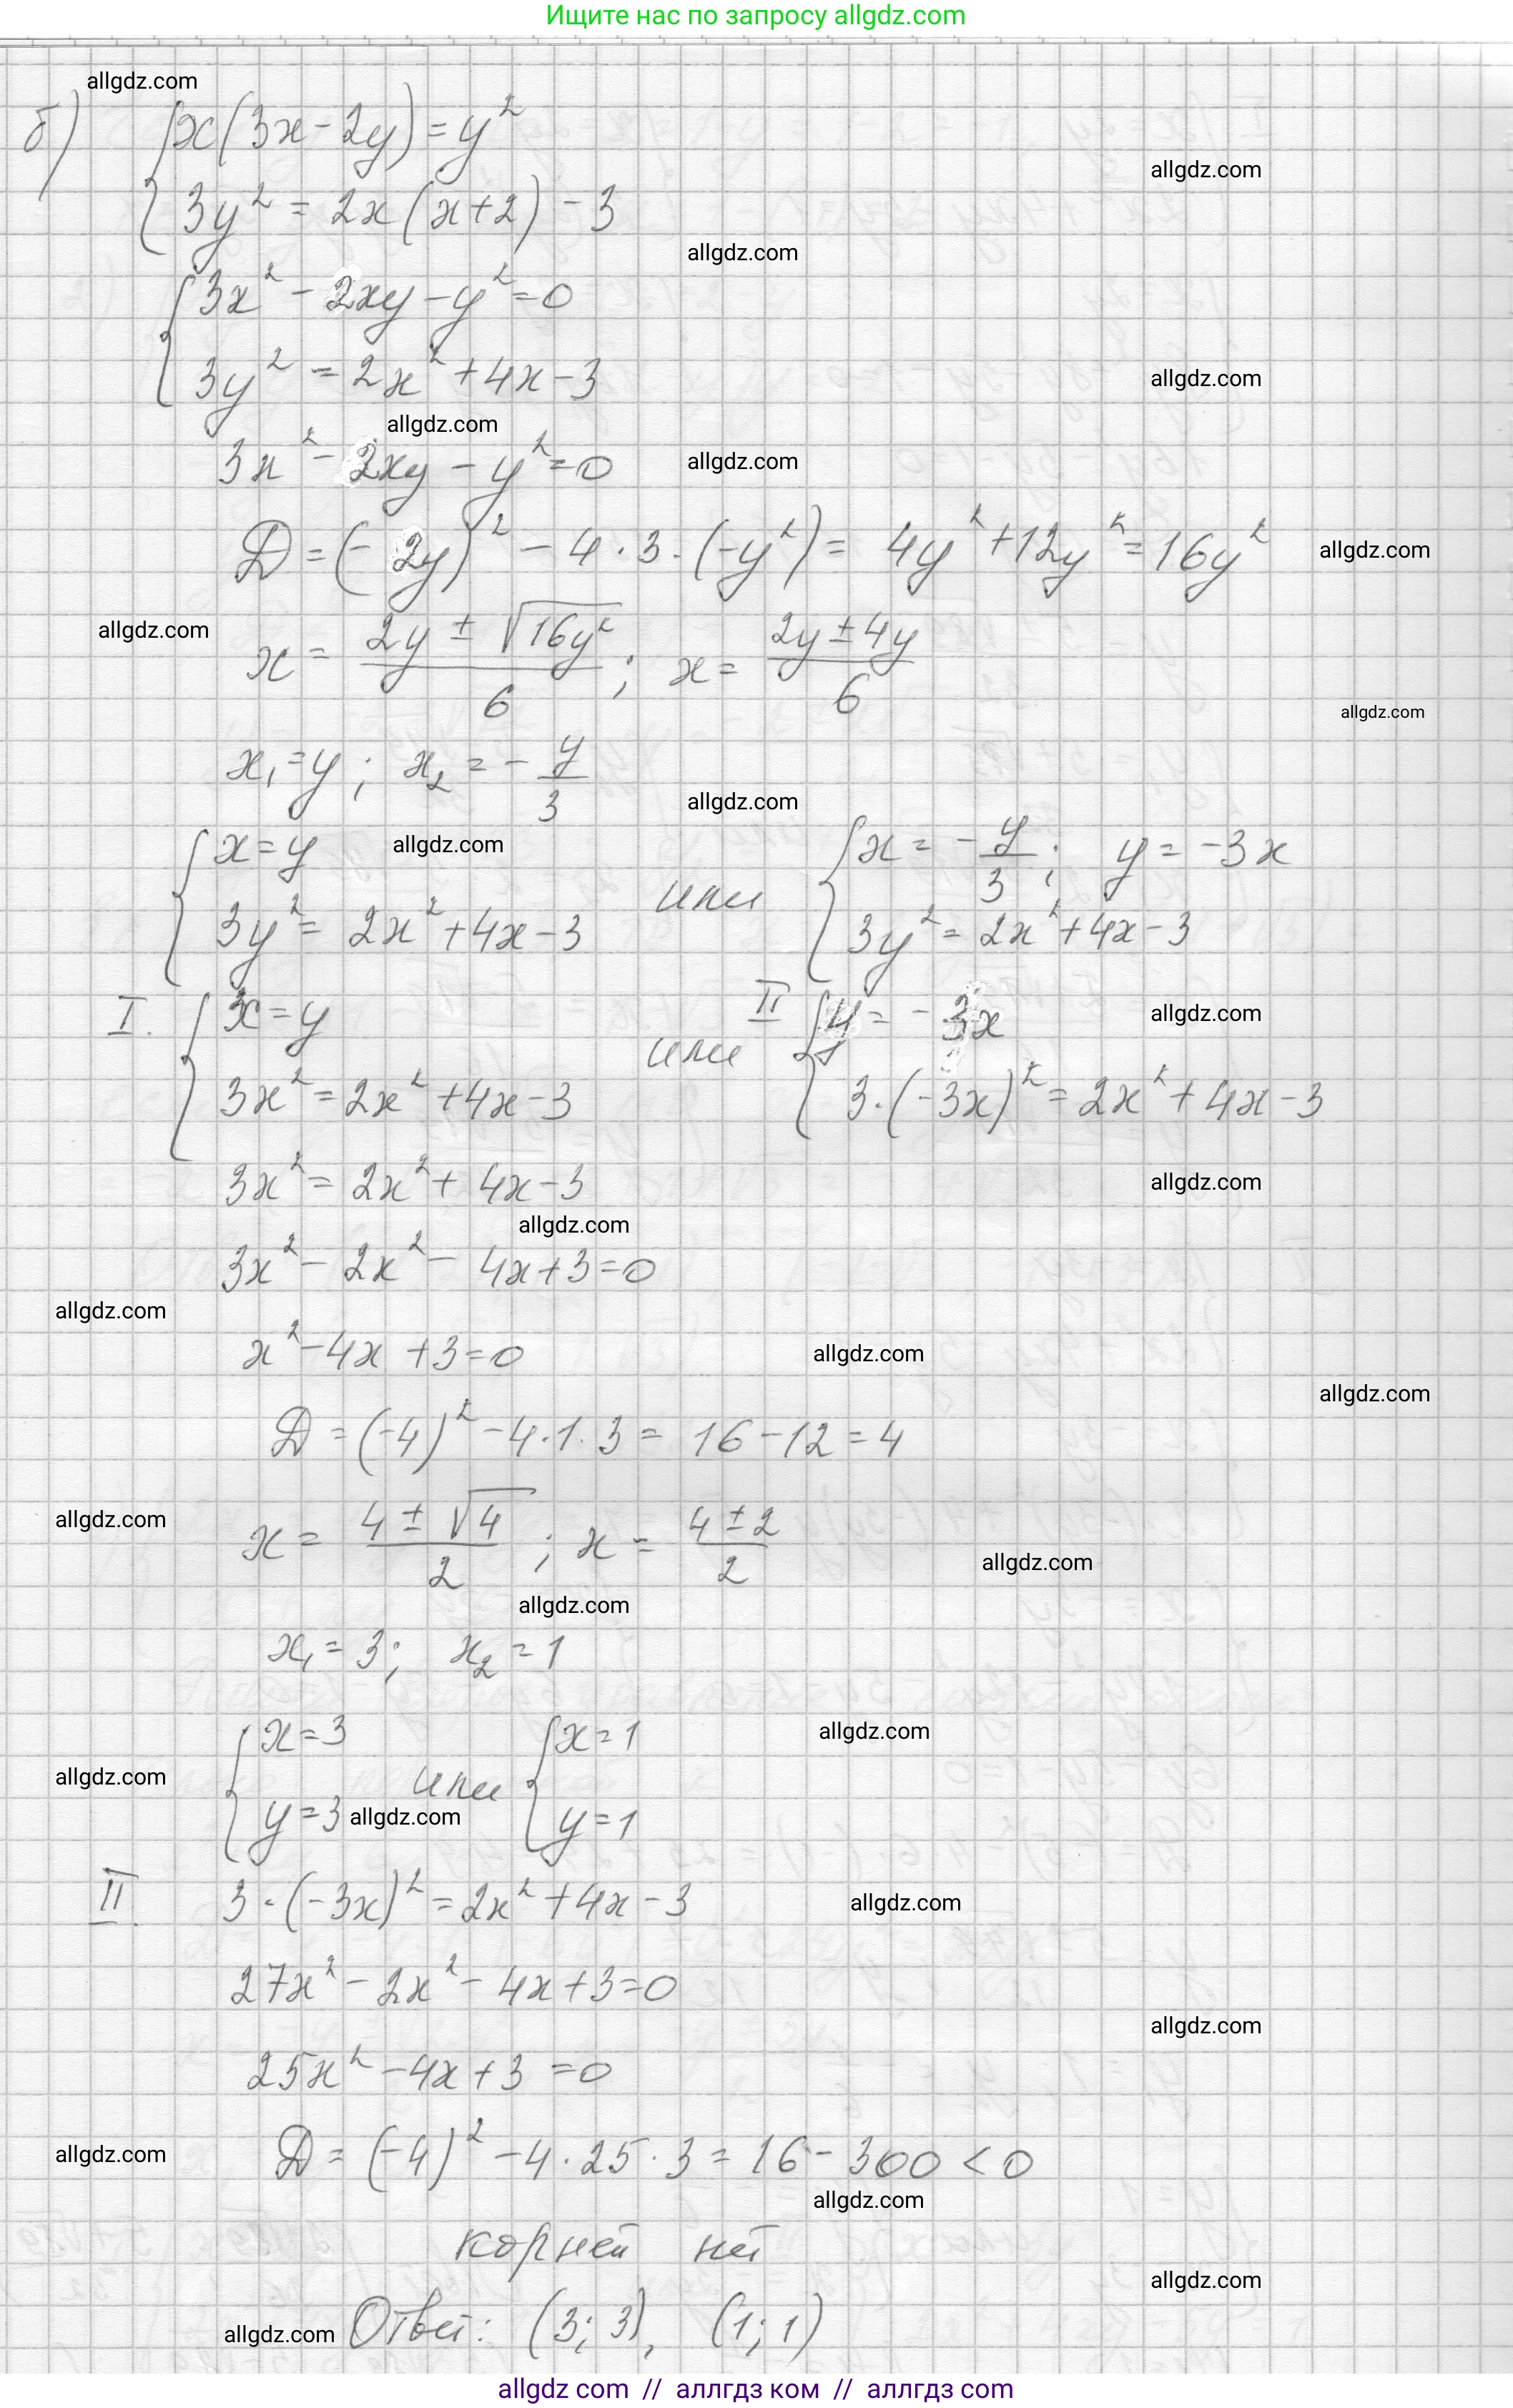 Ищите нас по запросу allgdz.com
allgdz.com
б) { x(3x-2y)=y²
allgdz.com
{ 3y² = 2x(x+2)-3
allgdz.com
{ 3x²-2xy-y²=0
{ 3y² = 2x²+4x-3
allgdz.com
allgdz.com
3x²-2xy-y²=0
allgdz.com
D=(-2y)²-4·3·(-y²)= 4y²+12y²=16y²
allgdz.com
allgdz.com
x = (2y ± √16y²)/6 ; x = (2y±4y)/6
allgdz.com
x₁=y ; x₂ = -y/3
allgdz.com
{ x=y allgdz.com или { x = -y/3 ; y = -3x
{ 3y² = 2x²+4x-3 { 3y² = 2x²+4x-3
I. { x=y или II { y = -3x allgdz.com
{ 3x²=2x²+4x-3 { 3·(-3x)² = 2x²+4x-3
3x² = 2x²+4x-3
allgdz.com
allgdz.com
3x²-2x²-4x+3=0
allgdz.com
x²-4x+3=0
allgdz.com
allgdz.com
D=(-4)²-4·1·3 = 16-12=4
allgdz.com
x = (4±√4)/2 ; x = (4±2)/2
allgdz.com
allgdz.com
x₁=3; x₂=1
{ x=3 или { x=1
allgdz.com
allgdz.com
{ y=3 allgdz.com { y=1
II. 3·(-3x)²=2x²+4x-3
allgdz.com
27x²-2x²-4x+3=0
allgdz.com
25x²-4x+3=0
allgdz.com
D=(-4)²-4·25·3=16-300<0
allgdz.com
корней нет
allgdz.com
allgdz.com Ответ: (3;3), (1;1)
allgdz com // аллгдз ком // аллгдз com